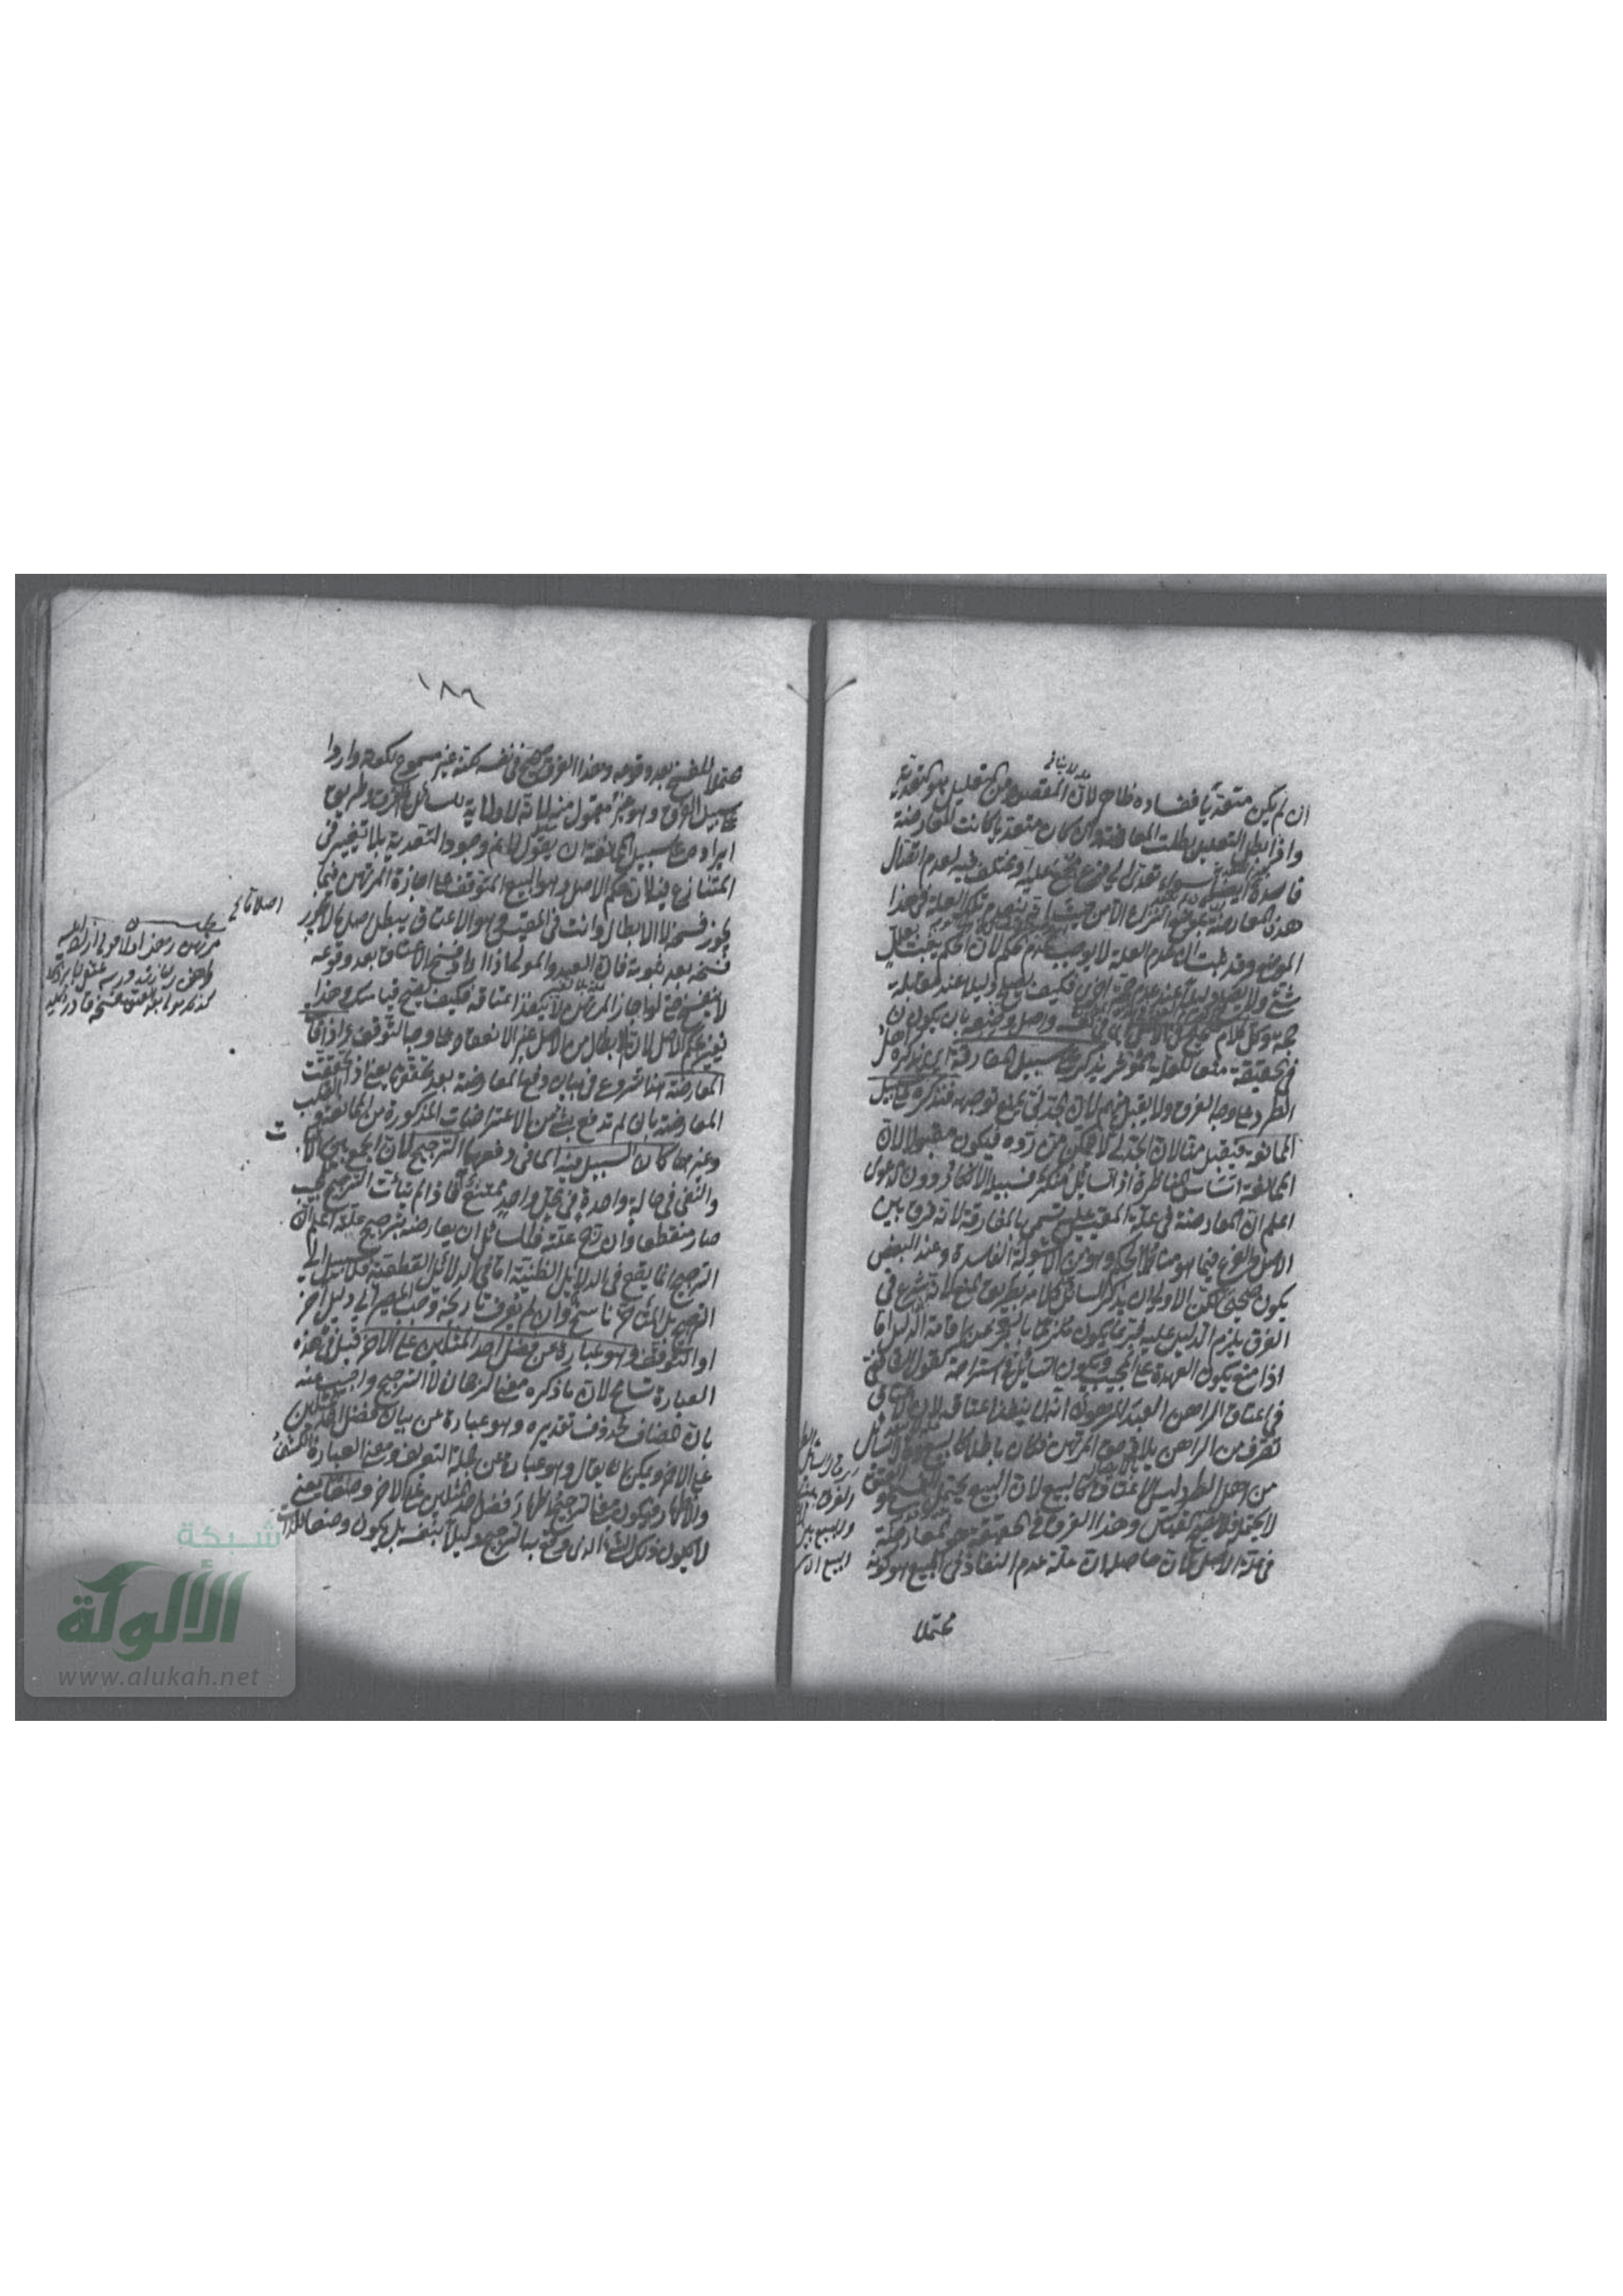 ان لم يكن متعديا ففساده ظاهر لان المقصود من التعليل هو التعدية
واذا بطل التعليل بطلت المعارضة وان كان متعديا كانت المعارضة
فاسدة ايضا سواء تعدى الى فرع مجمع عليه او مختلف فيه لعدم اتصال
هذه المعارضة بموضع النزاع الا من حيث انه ينعدم تلك العلة في هذا
الموضع وقد ثبت ان عدم العلة لا يوجب عدم الحكم لان الحكم يثبت بعلل
شتى ولا يصلح دليلا عند عدم حجة اخرى فكيف يصلح دليلا عند مقابلة
حجة وكل كلام صحيح في الاصل اي في نفسه واصل وضعه بان يكون
في الحقيقة منعا للعلة المؤثرة يذكر على سبيل المفارقة اي يذكره اهل
الطرد على وجه الفرق ولا يقبل منهم لان الجدلي يمنع توجهه فنذكره على سبيل
الممانعة فيقبل منا لان الجدلي لا يتمكن من رده فيكون مقبولا لان
الممانعة اساس المناظرة اذ السائل منكر فسبيله الانكار دون الدعوى
اعلم ان المعارضة في علة المقيس عليه تسمى بالمفارقة لانه فرق بين
الاصل والفرع فيما هو مناط الحكم وهو من الاسولة الفاسدة وعند البعض
يكون صحيحا لكن الاولى ان يذكر السائل كلامه بطريق المنع لانه شرع في
الفرق يلزم الدليل عليه فربما يكون ملزما بالعجز عن اقامة الدليل اما
اذا منع يكون العهدة على المجيب ويكون السائل في استراحة كقول الشافعي
في اعتاق الراهن العبد المرهون انه لا ينفذ اعتاقه لان الاعتاق
تصرف من الراهن يلاقي حق المرتهن فكان باطلا كالبيع فقال السائل
من اهل الطرد ليس الاعتاق كالبيع لان البيع يحتمل الفسخ والعتق
لا يحتمله فلا يصح القياس وهذا الفرق في الحقيقة هو المعارضة
في علة الاصل لان حاصله ان علة عدم النفاذ في البيع هو كونه
محتملا
١٨٩
محتملا للفسخ بعد وقوعه وهذا الفرق صحيح في نفسه لكنه غير مسموع لكونه واردا
على سبيل الفرق وهو غير مقبول منه لانه لا ولاية للسائل
ايراده على سبيل الممانعة ان يقول لا نم وجود التعدية بلا تغيير في
المتنازع فيه لان حكم الاصل وهو البيع التوقف على اجازة المرتهن فيما
يجوز فسخه لا الابطال وانت في المقيس وهو الاعتاق يبطل اصلا ما لا يجوز
فسخه بعد ثبوته فان العبد والمولى اذا ارادا فسخ الاعتاق بعد وقوعه
لا ينفسخ حتى لو اجاز المرتهن لا ينفذ اعتاقه فكيف يصح قياسك وهذا
تغيير حكم الاصل لان الابطال من الاصل غير الانعقاد على وجه التوقف واذا قامت
المعارضة هذا شروع في بيان دفع المعارضة بعد تحققها يعني اذا تحققت
المعارضة بان لم تدفع بشئ من الاعتراضات المذكورة من الممانعة والقلب
وغيرهما كان السبيل فيه اي في دفعها الترجيح لان الجمع بين الاثبات
والنفي في حالة واحدة في محل واحد ممتنع فاذا لم يتأت الترجيح للمجيب
صار منقطعا وان رجح علته فللسائل ان يعارضه بترجيح علته اعلم ان
الترجيح انما يقع في الدلائل الظنية اما في الدلائل القطعية فلا سبيل الى
الترجيح بل المتأخر ناسخ وان لم يعرف تاريخه وجب المصير الى دليل اخر
او التوقف وهو عبارة عن فضل احد المثلين على الاخر قيل في هذه
العبارة تسامح لان ما ذكره معنى الرجحان لا الترجيح واجيب عنه
بان المضاف محذوف تقديره وهو عبارة عن بيان فضل احد المثلين
على الاخر ويمكن ان يقال وهو عبارة عن جملة التعريف ومعنى العبارة الكشف
والاظهار فيكون معنى الترجيح اظهار فضل احد المثلين على الاخر وصفا يعني
لا يكون ذلك الشئ الذي وقع به الترجيح دليلا بنفسه بل يكون وصفا للذات
شبكة
الألوكة
www.alukah.net